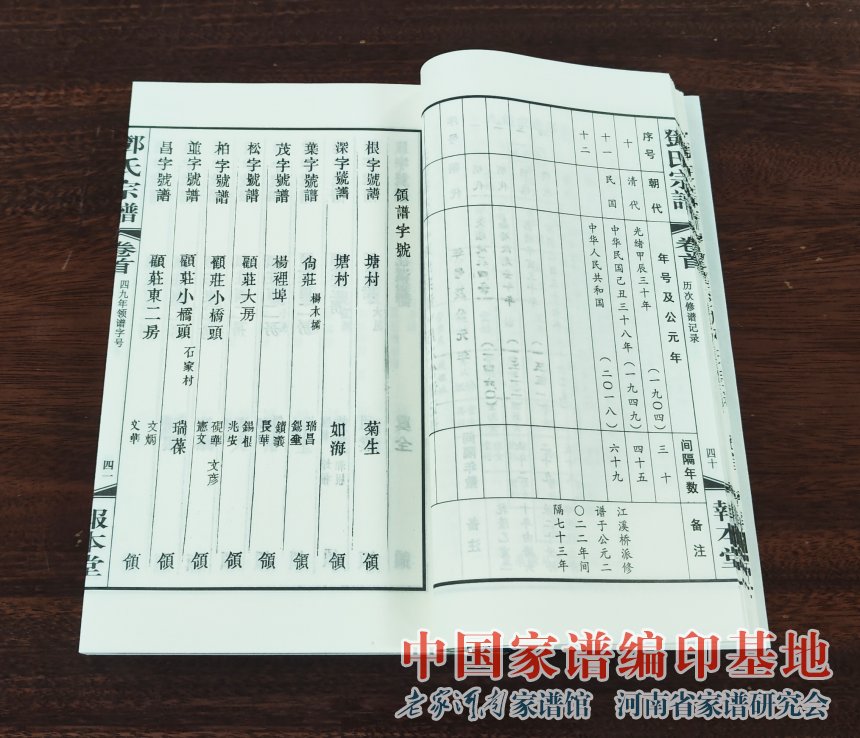 鄧氏宗譜
卷首
历次修谱记录
四十
報本堂
序号
朝代
年号及公元年
间隔年数
备注
十
清代
光绪甲辰三十年
（一九〇四）
三十
十一
民国
中华民国己丑三十八年
（一九四九）
四十五
十二
中华人民共和国
（二〇一八）
六十九
江溪桥派修
谱于公元二
〇二二年间
隔七十三年
領譜字號
根字號譜
塘村
菊生
領
深字號譜
塘村
如海
領
葉字號譜
尙莊
楊木橋
瑞昌
錫金
領
茂字號譜
楊裡埠
鎖義
長華
領
松字號譜
顧莊大房
錫根
兆安
領
柏字號譜
顧莊小橋頭
硯華
文彦
憲文
領
並字號譜
顧莊小橋頭
石家村
瑞葆
領
昌字號譜
顧莊東二房
文炳
文華
領
鄧氏宗譜
卷首
四九年领谱字号
四一
報本堂
中国家谱编印基地
老家河南家谱馆 河南省家谱研究会